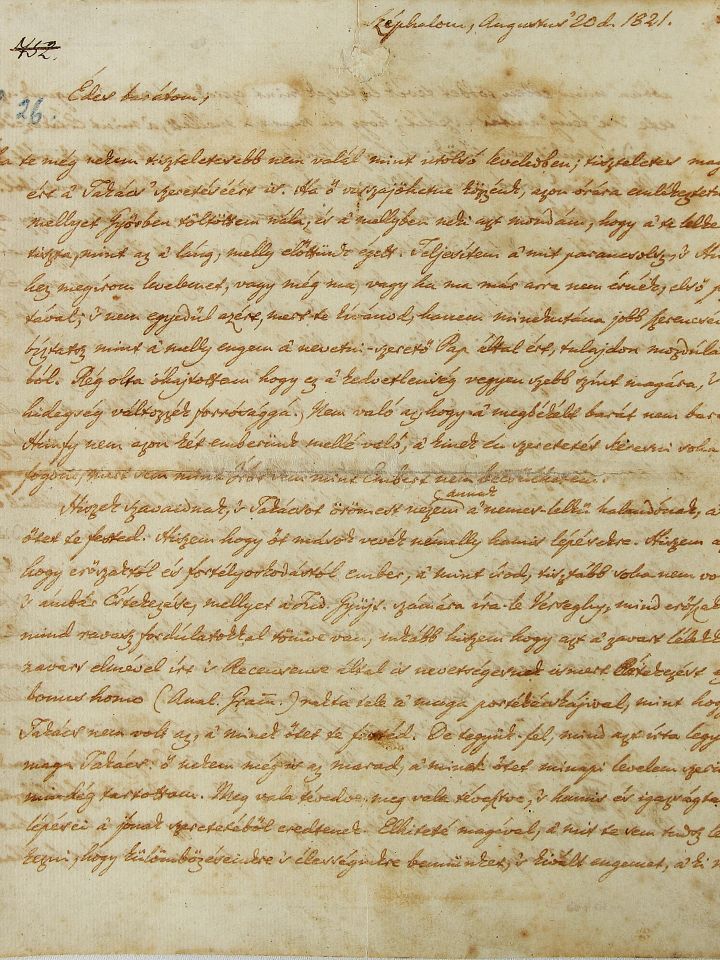 Széphalom, Augustus 20d. 1821.
452.
26.
Édes barátom,
te még nekem tiszteletesebb nem valál mint utolsó leveledben; tiszteletes mag
ért a' Takács' szeretéséért is. Ha ő visszajöhetne közzénk, azon órára emlékeztetn
mellyet Győrben töltöttem nála, és a' mellyben neki azt mondám, hogy a' te lelke
tiszta, mint az a' láng, melly előttünk égett. Teljesítem a' mit parancsolsz, 's
hez megírom levelemet, vagy még ma, vagy ha ma más arra nem érnék, első p
tával; 's nem egyedül azért, mert te kívánod, hanem minekutána jobb szerencsé
bíztatsz mint a' melly engem a' nevetni-szerető Pap által ért, tulajdon mozdula
ból. Rég olta óhajtottam hogy ez a' kedvetlenség vegyen szebb színt magára, 's
hidegség változzék forrósággá. Nem való az, hogy a' megbékélt barát nem bará
Himfy nem azon két emberünk mellé való, a' kinek én szeretetét keresni soha
fogom, mert sem mint Írót sem mint Embert nem becsülhetem.
Hiszek szavadnak, 's Takácsot örömest nézem annak a' nemes-lelkű halandónak, a'
őtet te fested. Hiszem hogy őt mások vevék némelly hamis lépésekre. Hiszem a
hogy erőszaktól és fortélyoskodástól ember, a' mint írod, tisztább soha nem vo
's ámbár Értekezése, mellyet a' Tud. Gyűjt. számára íra-le Verseghy, mind erőszak
mind ravasz fordulatokkal tömve van, inkább hiszem hogy azt a' zavart lélekk
zavart elmével írt 's Recensense által is nevetségesnek ismert Értekezést
bonus homo (Anal. Gram̄.) rakta tele a' maga portékácskájival, mint hogy
Takács nem volt az, a' minek őtet te fested. De tegyük-fel, mind azt írta légy
maga Takács: ő nekem még is az marad, a' minek őtet minapi levelem szeri
mindég tartottam. Meg vala tévedve, meg vala tévesztve, 's hamis és igazságta
lépései a' jónak szeretetéből eredtenek. Elhiteté magával, a' mit te sem tudsz
kezni, hogy külömbözéseinkre 's élességinkre bennünket, 's kivált engemet, a' ki